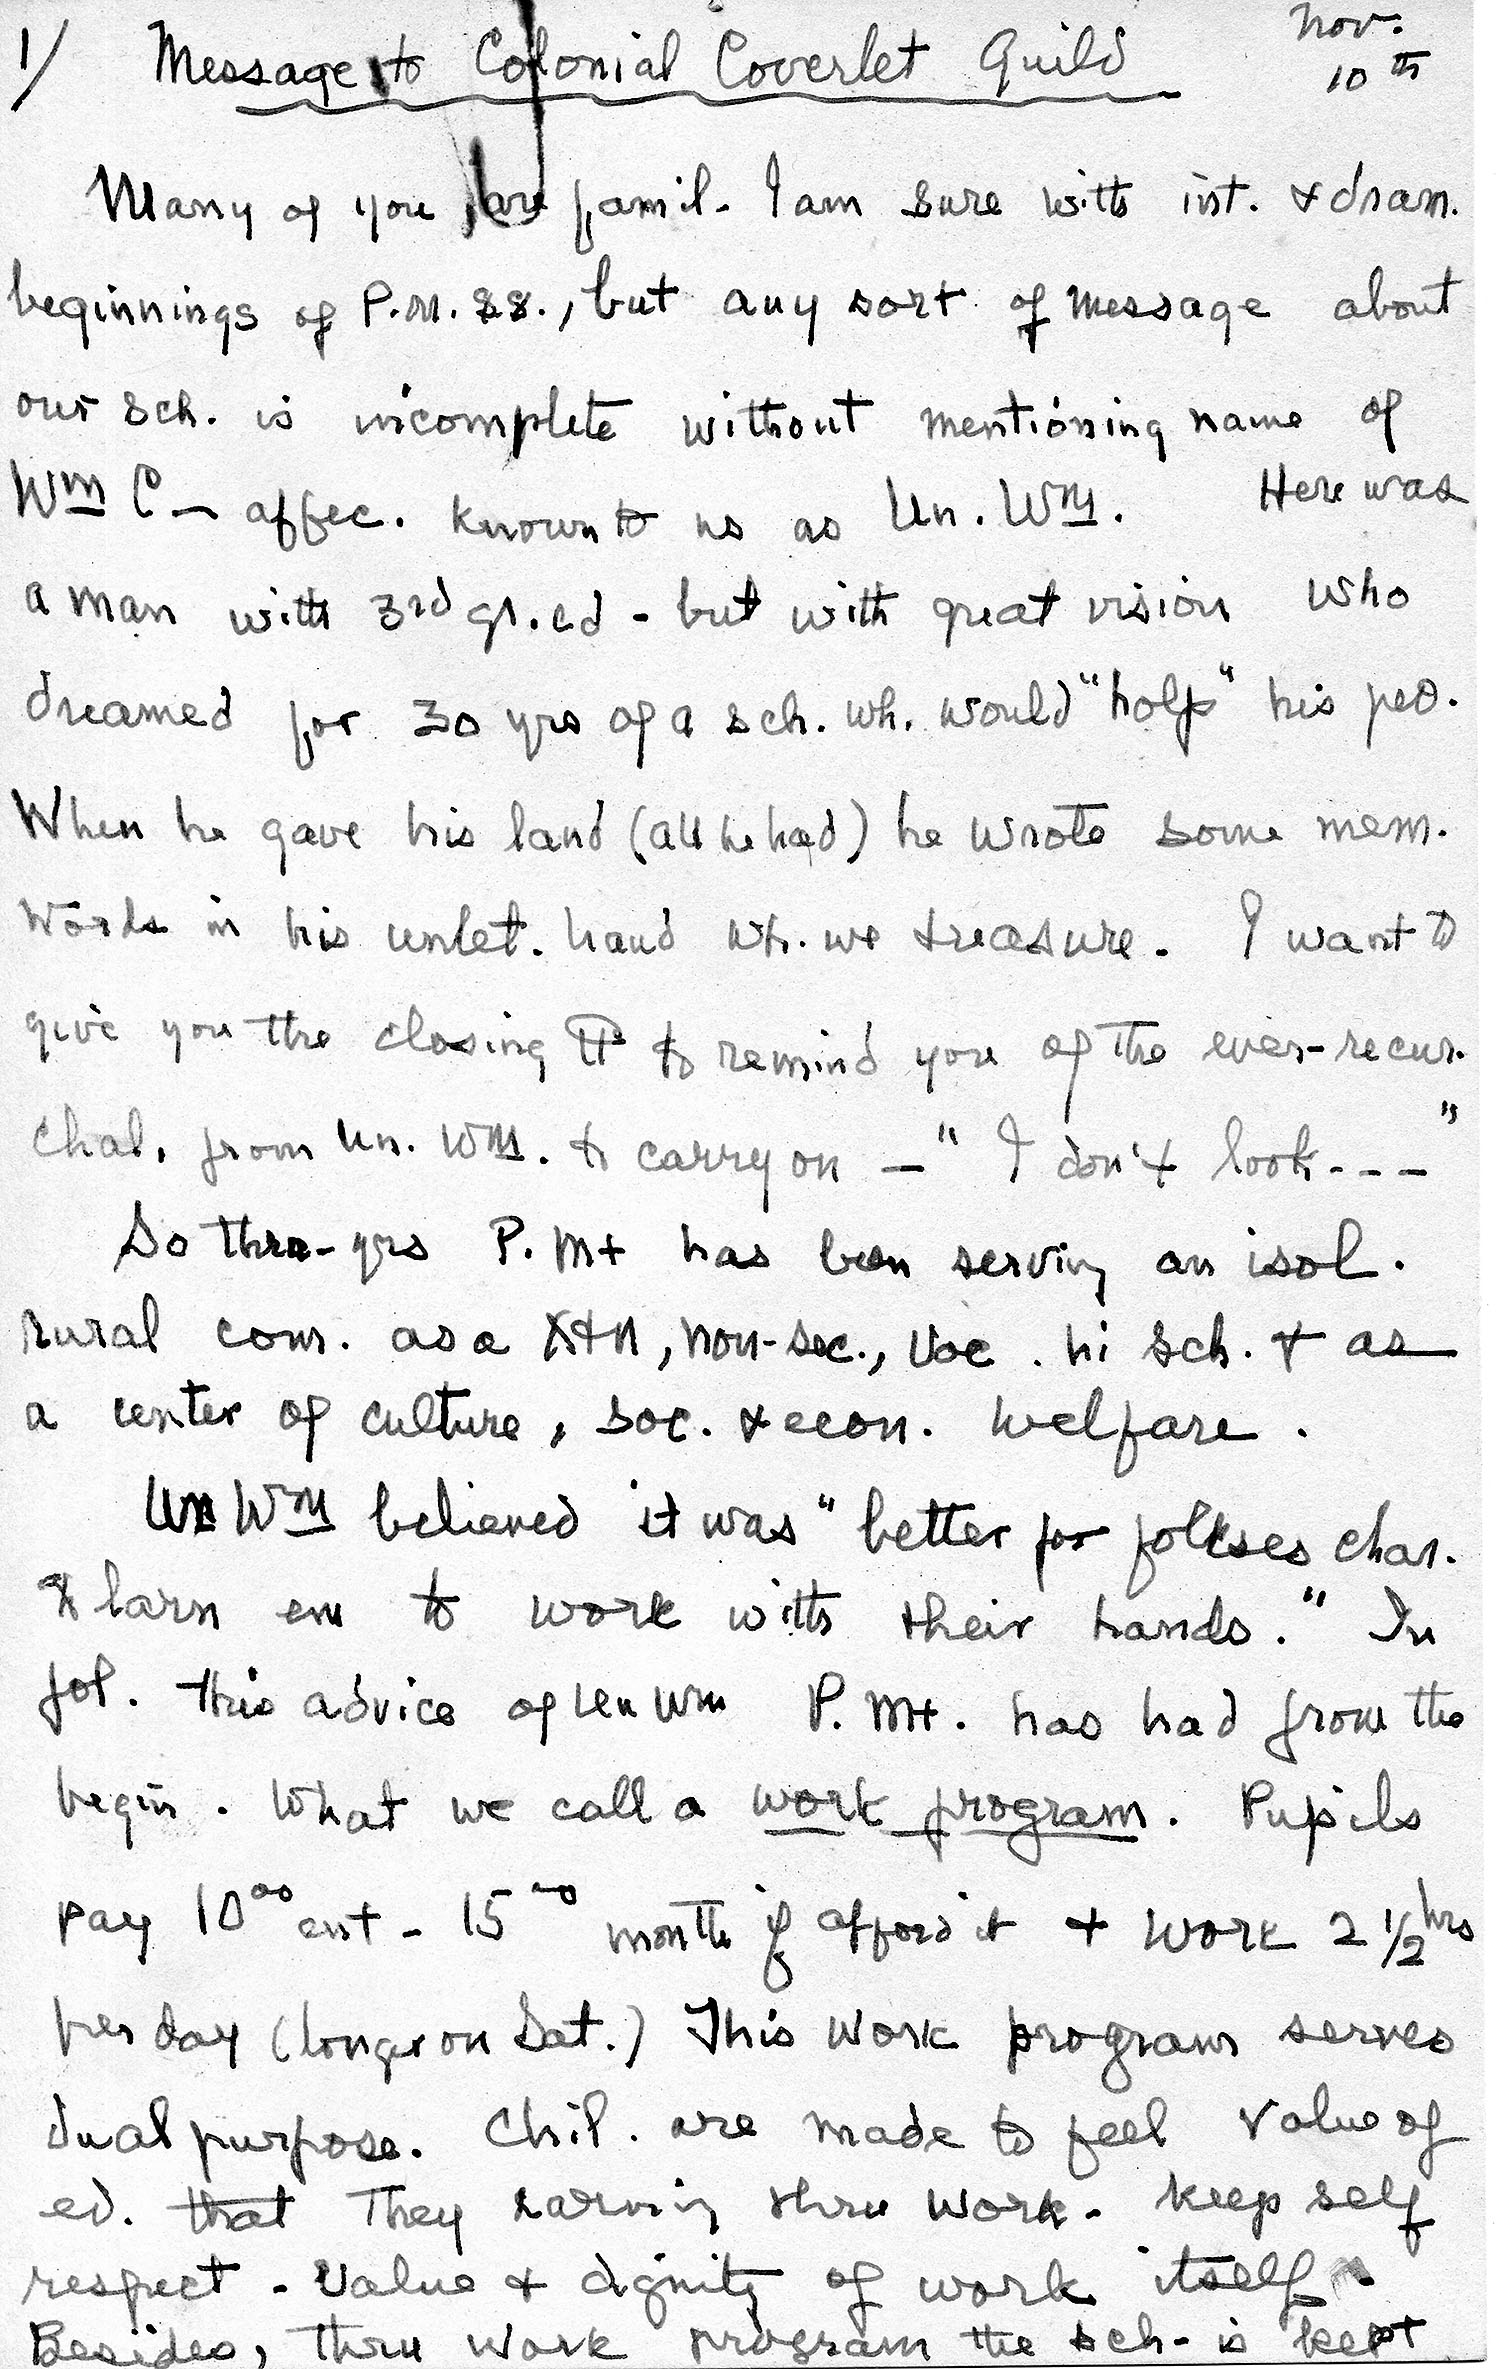 1/ Message to Colonial Coverlet Guild Nov. 10th
Many of you are famil. I am sure with int. & dram.
beginnings of P.M.S.S., but any sort of message about
our sch. is incomplete without mentioning name of
Wm C— affec. known to us as Un. Wm. Here was
a man with 3rd gr. ed - but with great vision who
dreamed for 30 yrs of a sch. wh. would "holp" his peo.
When he gave his land (all he had) he wrote some mem.
words in his unlet. hand wh. we treasure. I want to
give you the closing ¶ to remind you of the ever-recur.
chal. from Un. Wm. to carry on — "I don't look---"
So thru-yrs P. Mt has been serving an isol.
rural com. as a Xtn, non-sec., voc. hi sch. & as
a center of culture, soc. & econ. welfare.
Un Wm believed it was "better for folkses char.
to larn em to work with their hands." In
fol. this advice of Un Wm P. Mt. has had from the
begin. what we call a work program. Pupils
pay 10.00 ent - 15.00 month if afford it + work 2 1/2 hrs
per day (longer on Sat.) This work program serves
dual purpose. Chil. are made to feel value of
ed. that they earning thru work - keep self
respect - value & dignity of work itself.
Besides, thru work program the sch- is kept